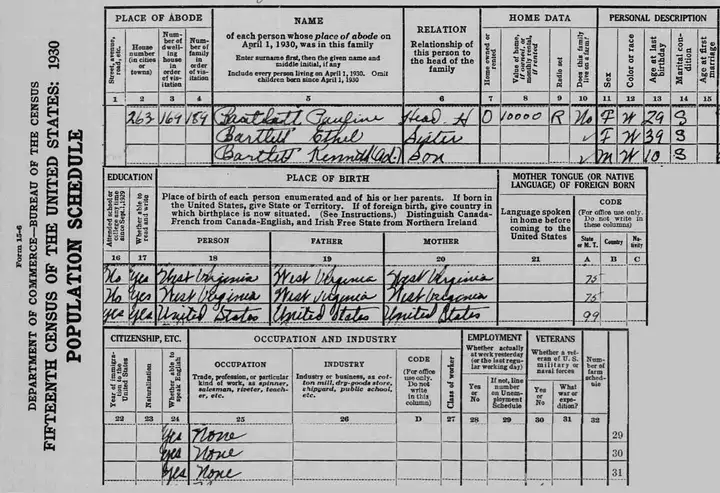 Form 15-6
DEPARTMENT OF COMMERCE—BUREAU OF THE CENSUS
FIFTEENTH CENSUS OF THE UNITED STATES: 1930
POPULATION SCHEDULE
PLACE OF ABODE
Street, avenue, road, etc.
House number (in cities or towns)
Number of dwelling house in order of visitation
Number of family in order of visitation
NAME
of each person whose place of abode on
April 1, 1930, was in this family
Enter surname first, then the given name and
middle initial, if any
Include every person living on April 1, 1930. Omit
children born since April 1, 1930
RELATION
Relationship of this person to the head of the family
HOME DATA
Home owned or rented
Value of home, if owned, or monthly rental, if rented
Radio set
Does this family live on a farm?
PERSONAL DESCRIPTION
Sex
Color or race
Age at last birthday
Marital condition
Age at first marriage
1 2 3 4 5 6 7 8 9 10 11 12 13 14 15
263 164 189 Bartlett Pauline Head H O 10000 R No F W 29 S
Bartlett Ethel Sister ✓ F W 39 S
Bartlett Kenneth (Ad.) Son ✓ M W 10 S
EDUCATION
Attended school or college any time since Sept. 1, 1929
Whether able to read and write
PLACE OF BIRTH
Place of birth of each person enumerated and of his or her parents. If born in
the United States, give State or Territory. If of foreign birth, give country in
which birthplace is now situated. (See Instructions.) Distinguish Canada-
French from Canada-English, and Irish Free State from Northern Ireland
PERSON FATHER MOTHER
MOTHER TONGUE (OR NATIVE
LANGUAGE) OF FOREIGN BORN
Language spoken in home before coming to the United States
CODE
(For office use only. Do not write in these columns)
State or M. T. Country Nativity
16 17 18 19 20 21 A B C
No Yes West Virginia West Virginia West Virginia 75
No Yes West Virginia West Virginia West Virginia 75
Yes Yes United States United States United States 99
CITIZENSHIP, ETC.
Year of immigration to the United States
Naturalization
Whether able to speak English
OCCUPATION AND INDUSTRY
OCCUPATION
Trade, profession, or particular kind of work, as spinner, salesman, riveter, teacher, etc.
INDUSTRY
Industry or business, as cotton mill, dry-goods store, shipyard, public school, etc.
CODE
(For office use only. Do not write in this column)
Class of worker
EMPLOYMENT
Whether actually at work yesterday (or the last regular working day)
Yes or No
If not, line number on Unemployment Schedule
VETERANS
Whether a veteran of U. S. military or naval forces
Yes or No
What war or expedition?
Number of farm schedule
22 23 24 25 26 D 27 28 29 30 31 32
Yes None 29
Yes None 30
Yes None 31